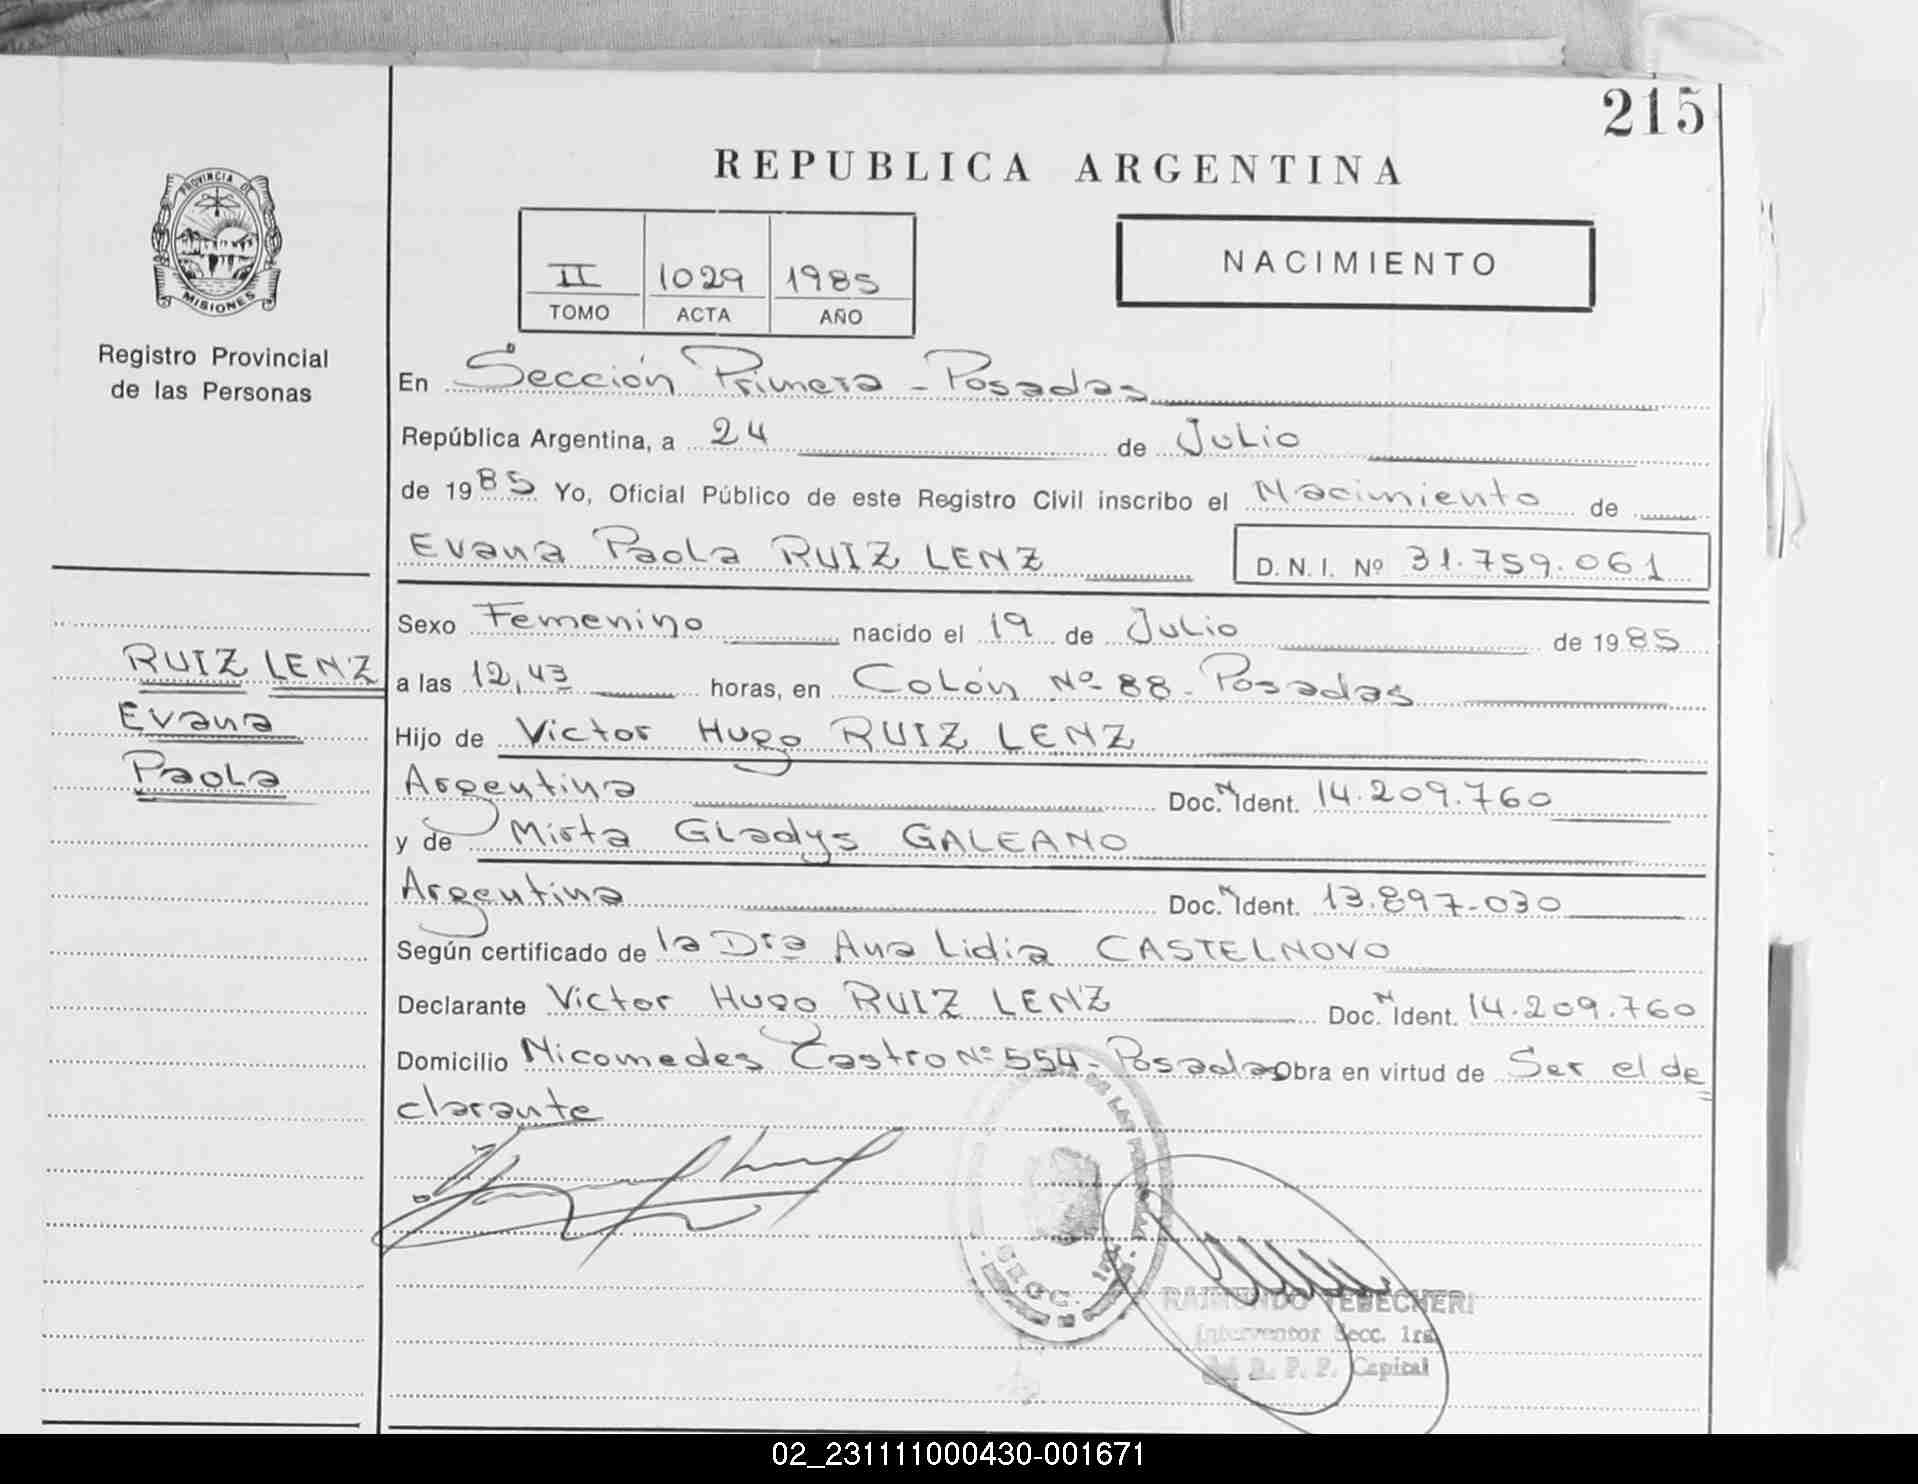 215
REPUBLICA ARGENTINA
PROVINCIA DE
MISIONES
Registro Provincial
de las Personas
II 1029 1985
TOMO ACTA AÑO
NACIMIENTO
En Sección Primera - Posadas
República Argentina, a 24 de Julio
de 1985 Yo, Oficial Público de este Registro Civil inscribo el Nacimiento de
Evana Paola RUIZ LENZ D.N.I. Nº 31.759.061
Sexo Femenino nacido el 19 de Julio de 1985
RUIZ LENZ
Evana
Paola
a las 12,43 horas, en Colón Nº 88 - Posadas
Hijo de Victor Hugo RUIZ LENZ
Argentina Doc. N Ident. 14.209.760
y de Mirta Gladys GALEANO
Argentina Doc. N Ident. 13.897.030
Según certificado de la Dra Ana Lidia CASTELNOVO
Declarante Victor Hugo RUIZ LENZ Doc. N Ident. 14.209.760
Domicilio Nicomedes Castro Nº 554 - Posadas Obra en virtud de Ser el de
clarante
DE LAS
SECC. 1ra
RAIMUNDO TEBECHERI
Interventor Secc. 1ra
R. P. P. Capital
02_231111000430-001671